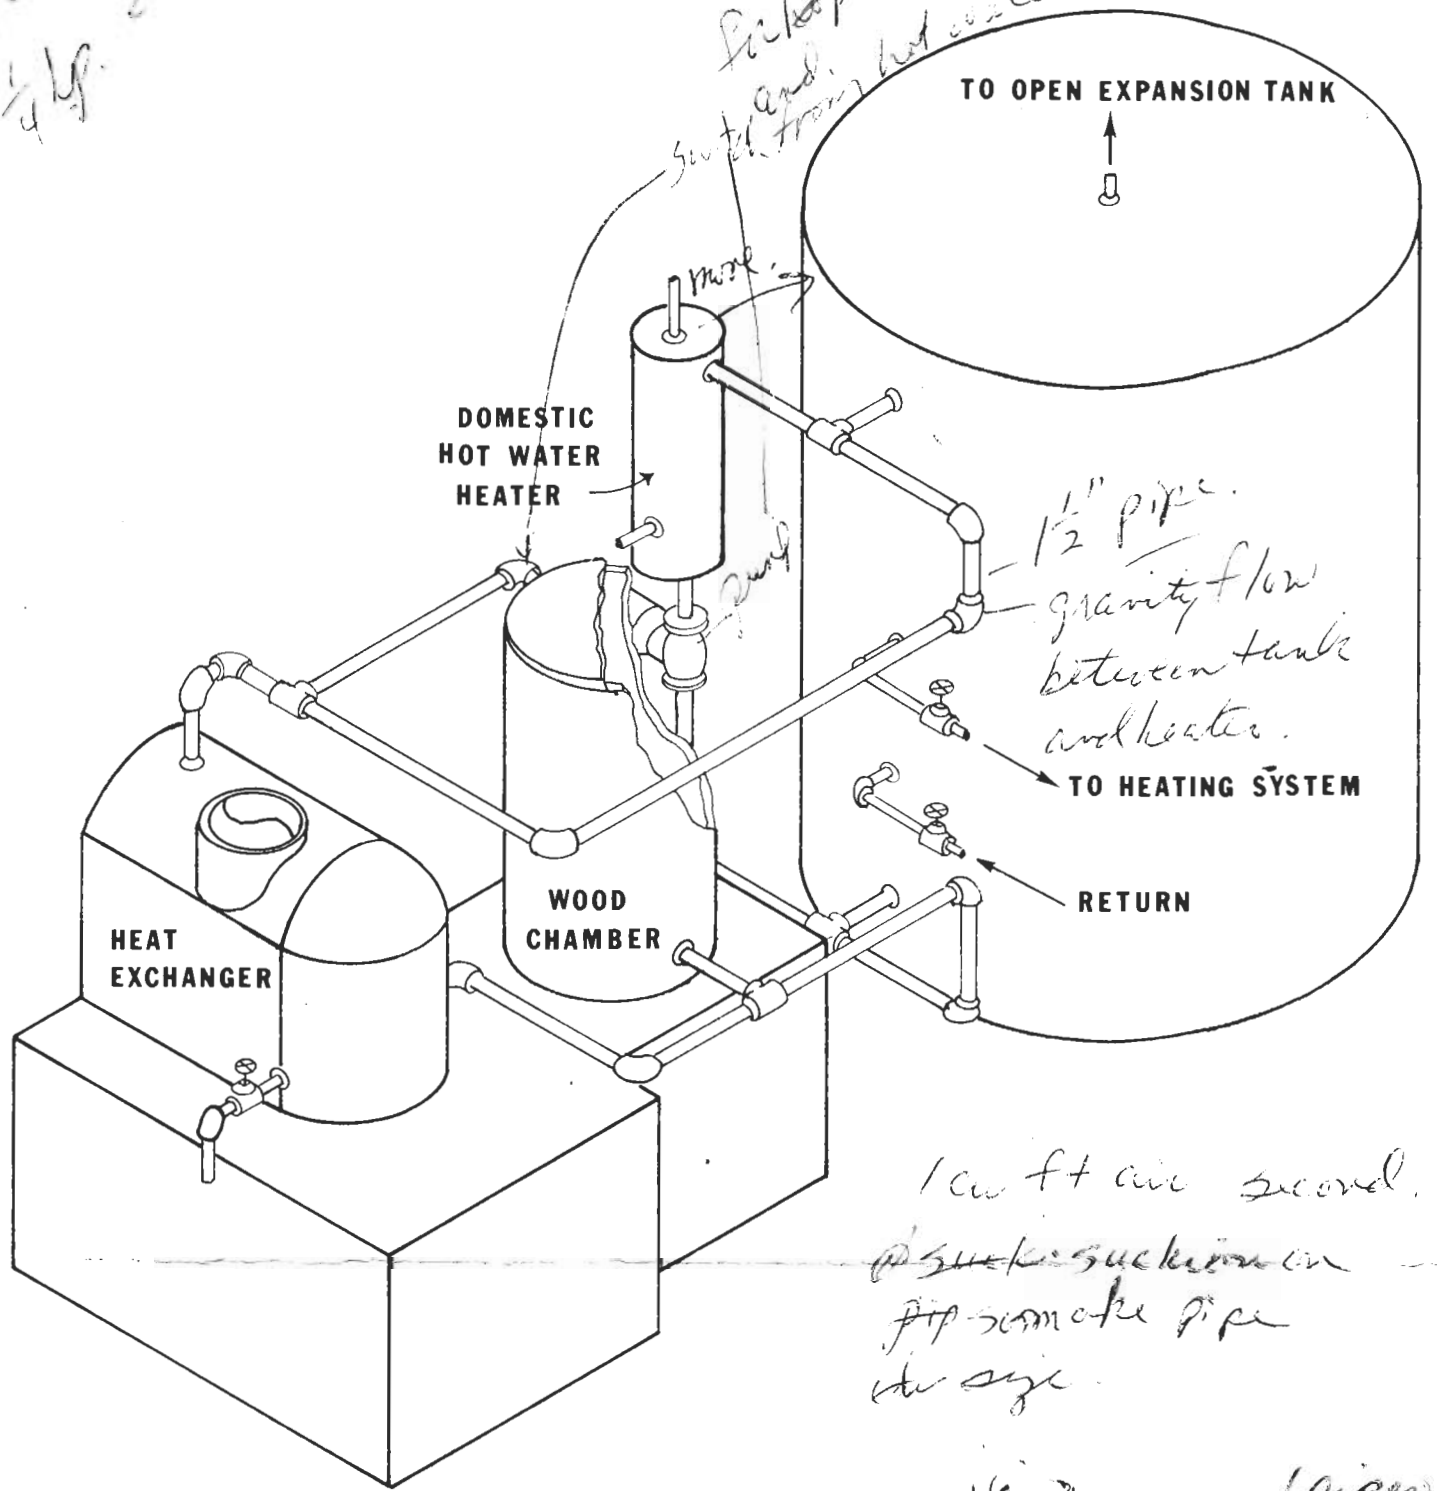 1/4 hp.
and
switch from hot
TO OPEN EXPANSION TANK
more.
DOMESTIC
HOT WATER
HEATER
pump
1 1/2" pipe.
gravity flow
between tank
and heater.
TO HEATING SYSTEM
WOOD
CHAMBER
RETURN
HEAT
EXCHANGER
1 cu ft air second.
suction on
smoke pipe
size.